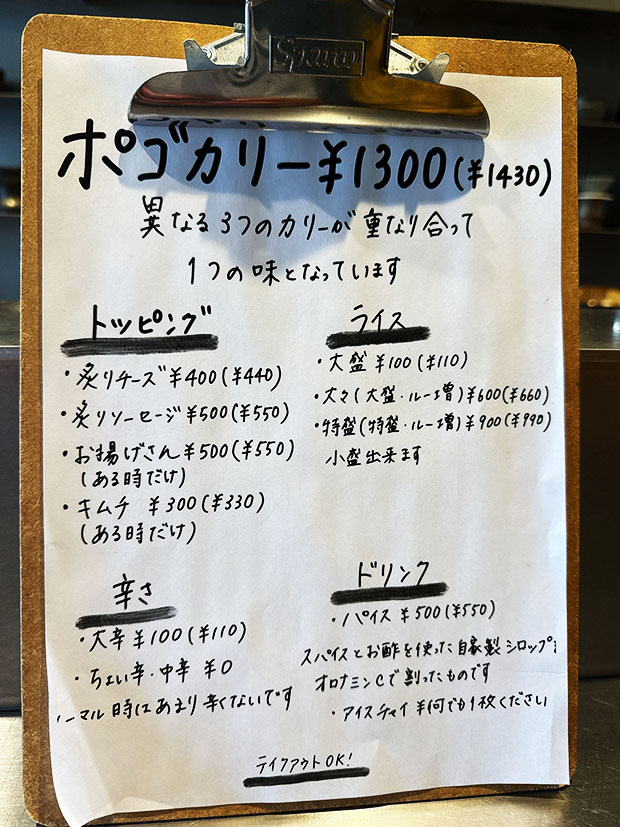 Spano
ポゴカリー¥1300(¥1430)
異なる3つのカリーが重なり合って
1つの味となっています
トッピング
・炙りチーズ¥400(¥440)
・炙りソーセージ¥500(¥550)
・お揚げさん¥500(¥550)
(ある時だけ)
・キムチ ¥300(¥330)
(ある時だけ)
ライス
・大盛 ¥100(¥110)
・大々(大盛・ルー増)¥600(¥660)
・特盛(特盛・ルー増)¥900(¥990)
小盛出来ます
辛さ
・大辛¥100(¥110)
・ちょい辛・中辛 ¥0
ーマル時はあまり辛くないです
ドリンク
・パイス¥500(¥550)
スパイスとお酢を使った自家製シロップを
オロナミンCで割ったものです
・アイスチャイ ¥何でも1枚ください
テイクアウトOK!